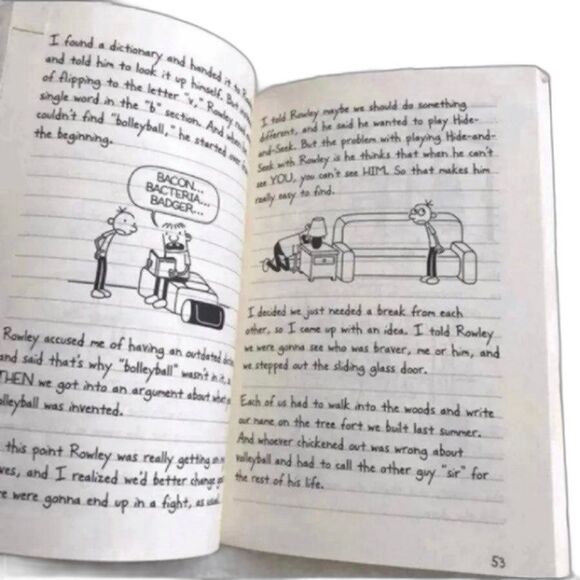 I found a dictionary and handed it to
and told him to look it up himself. But
of flipping to the letter "v," Rowley
single word in the "b" section. And when
couldn't find "bolleyball," he started over
the beginning.
BACON...
BACTERIA...
BADGER...
Rowley accused me of having an outdated
and said that's why "bolleyball" wasn't in it,
THEN we got into an argument about when
was invented.
this point Rowley was really getting on
and I realized we'd better change
were gonna end up in a fight, as usual.
I told Rowley maybe we should do something
different, and he said he wanted to play Hide-
and-Seek. But the problem with playing Hide-and-
Seek with Rowley is he thinks that when he can't
see YOU, you can't see HIM. So that makes him
really easy to find.
I decided we just needed a break from each
other, so I came up with an idea. I told Rowley
we were gonna see who was braver, me or him, and
we stepped out the sliding glass door.
Each of us had to walk into the woods and write
our name on the tree fort we built last summer.
And whoever chickened out was wrong about
volleyball and had to call the other guy "sir" for
the rest of his life.
53